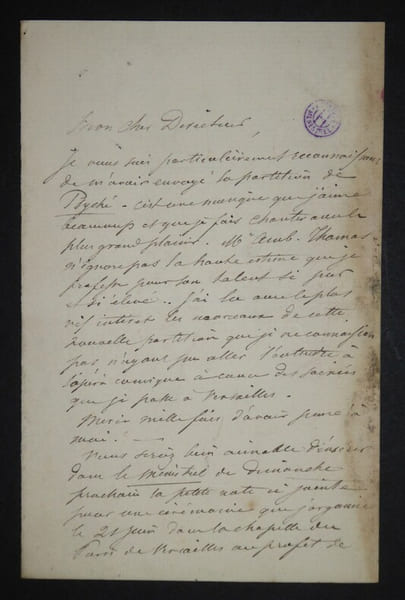 Mon cher Directeur,
Je vous suis particulièrement reconnaissant
de m'avoir envoyé la partition de
Psyché - c'est une musique que j'aime
beaucoup et que je fais chanter avec le
plus grand plaisir. Mr Amb. Thomas
n'ignore pas la haute estime que je
professe pour son talent si pur
et si élevé.. J'ai lu avec le plus
vif intérêt les morceaux de cette
nouvelle partition que je ne connaissais
pas n'ayant pu aller l'entendre à
l'opéra comique à cause des soirées
que je passe à Versailles.
Merci mille fois d'avoir pensé à
moi. -
Vous serez bien aimable d'insérer
dans le Ménestrel de Dimanche
prochain la petite note ci jointe
pour une cérémonie que j'organise
le 21 juin dans la chapelle du
de Versailles au profit de